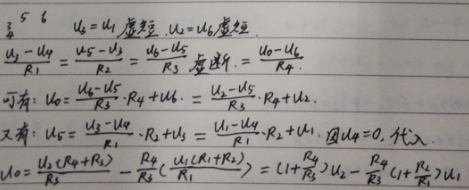 3 5 6
4
U₃=U₁ 虚短. U₂=U₆ 虚短.
(U₃-U₄)/R₁ = (U₅-U₃)/R₂ = (U₆-U₅)/R₃ 虚断. = (U₀-U₆)/R₄.
可有: U₀=(U₆-U₅)/R₃·R₄+U₆. = (U₂-U₅)/R₃·R₄+U₂.
又有: U₅=(U₃-U₄)/R₁·R₂+U₃ = (U₁-U₄)/R₁·R₂+U₁. 因U₄=0, 代入.
U₀=U₂(R₄+R₃)/R₃ - R₄/R₃(U₁(R₁+R₂)/R₁) = (1+R₄/R₃)U₂-R₄/R₃(1+R₂/R₁)U₁